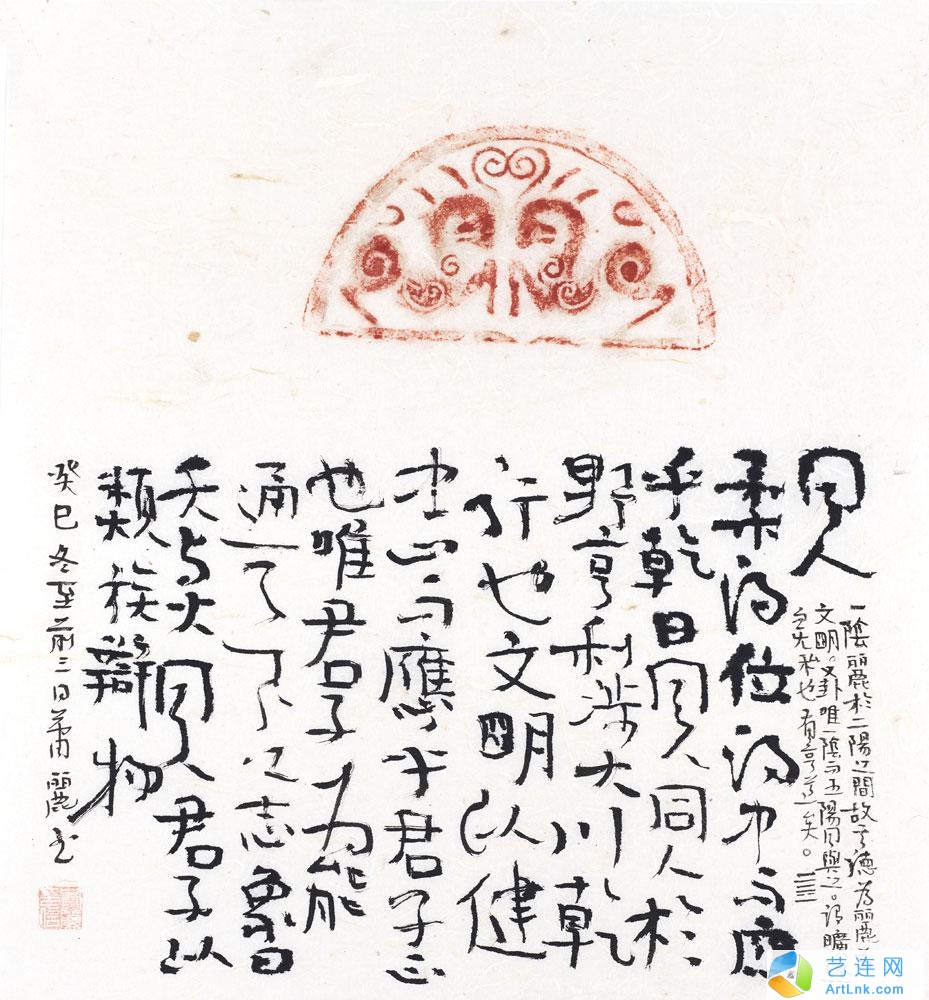 同人
一陰麗於二陽之間故其德为麗
文明。又卦唯一陰而五陽同與之。谓曠
之无私也有亨道矣。
柔得位得中而應
乎乾曰同人同人於
野亨利涉大川乾
行也文明以健
中正而應乎君子正
也唯君子为能
通天下之志象曰
天与火同人君子以
類族辯物
癸巳冬至前三日萧麗书
艺连网
ArtLnk.com